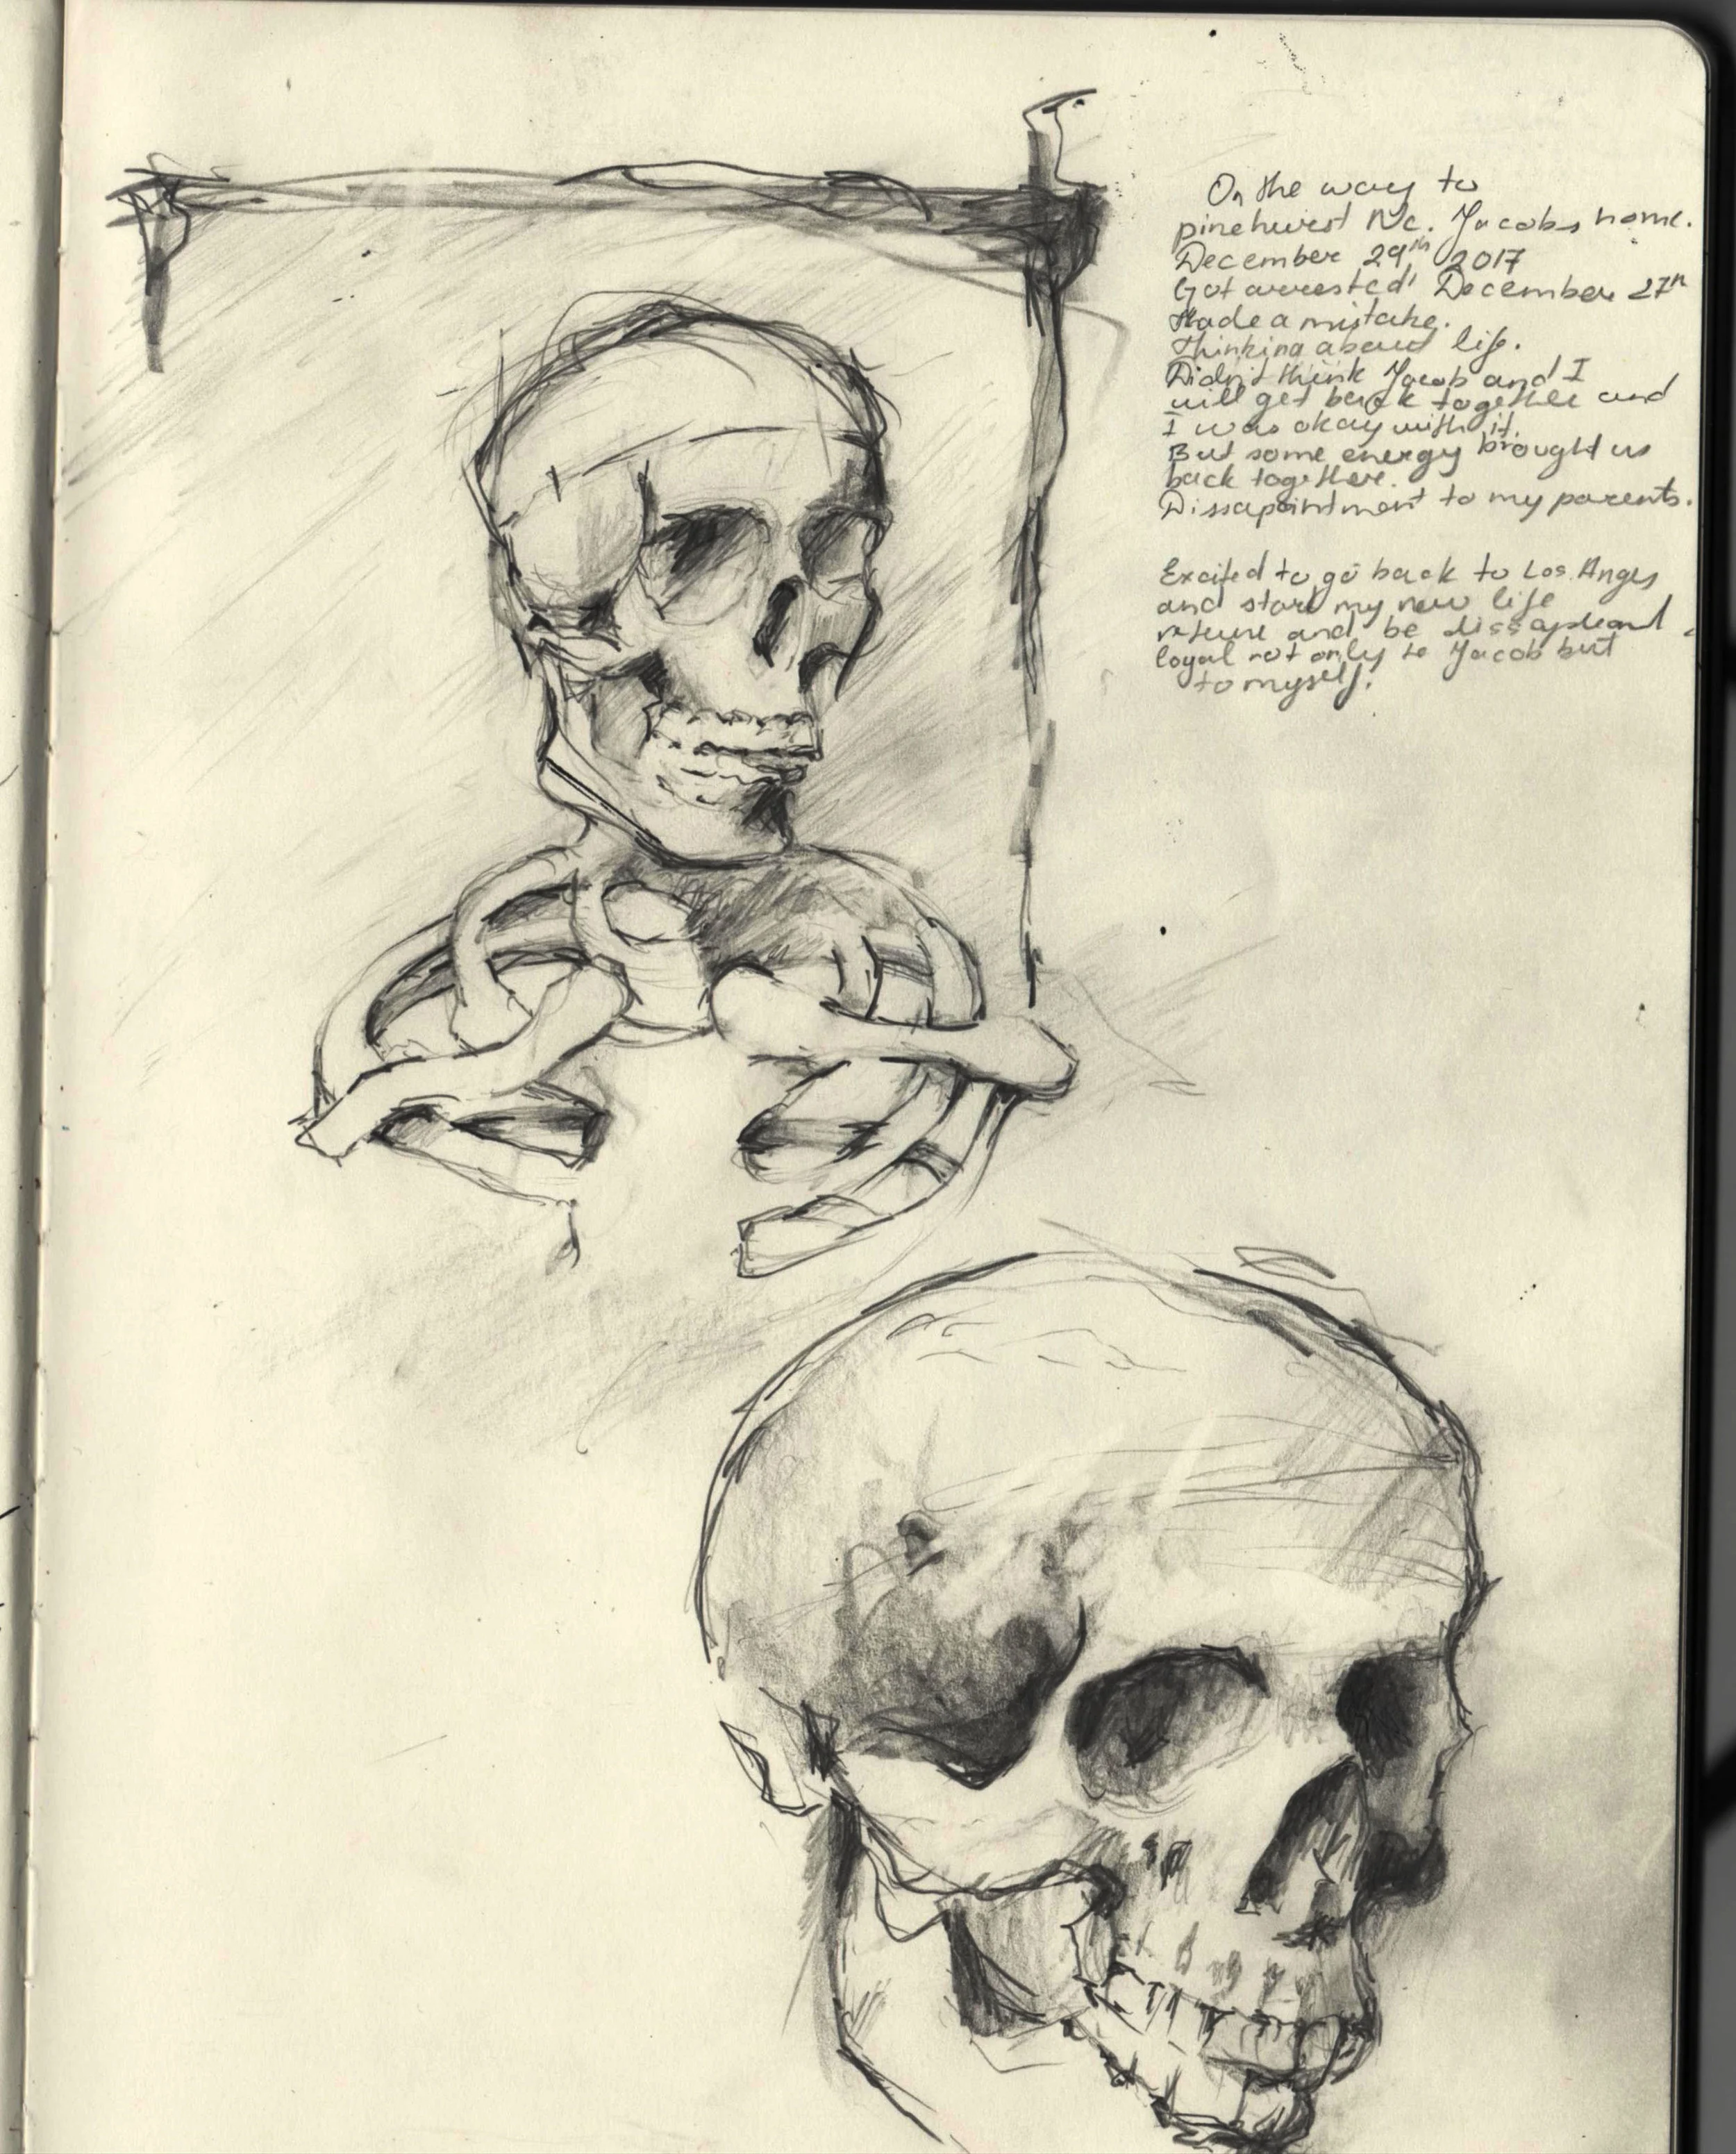 On the way to
pinehurst Nc. Jacobs home.
December 29th 2017
Got arrested December 27th
Made a mistake.
thinking about life.
Didn't think Jacob and I
will get back together and
I was okay with it.
But some energy brought us
back together.
Dissapointment to my parents.
Excited to go back to Los Angls
and start my new life
and be
loyal not only to Jacob but
to myself.